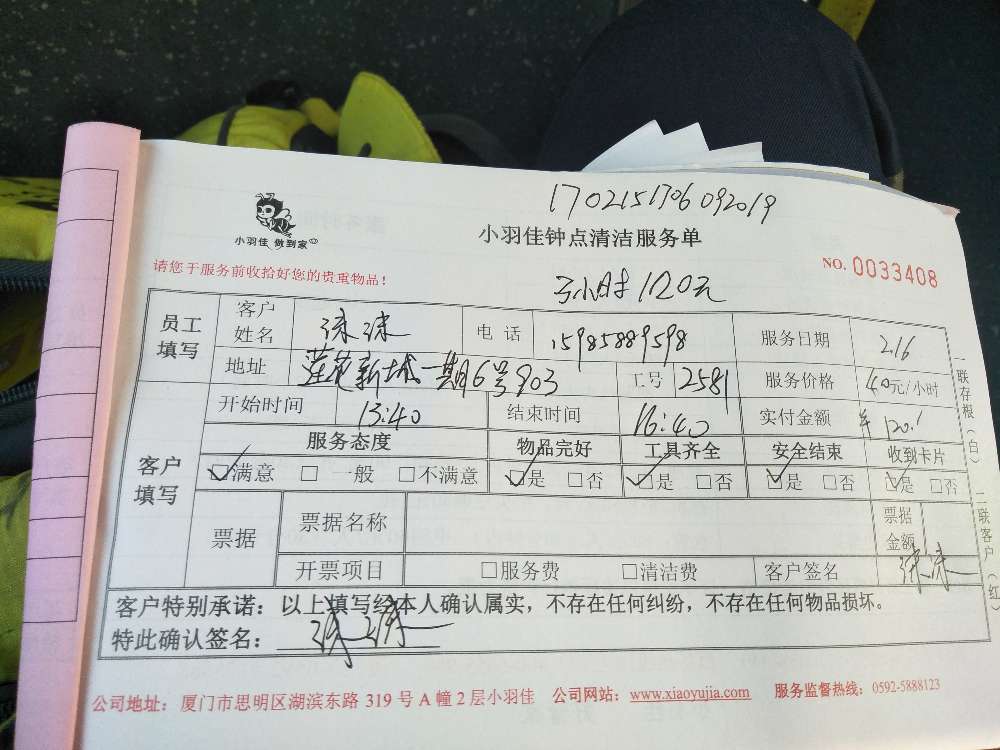 1702151706092019
小羽佳 做到家
小羽佳钟点清洁服务单
NO. 0033408
请您于服务前收拾好您的贵重物品！
3小时120元
员工填写 客户姓名 电话 15985889598 服务日期 2.16
地址 莲花新城一期6号903 工号 2581 服务价格 40元/小时
客户填写 开始时间 13:40 结束时间 16:40 实付金额 ¥120.
服务态度 物品完好 工具齐全 安全结束 收到卡片
☑满意 □一般 □不满意 ☑是 □否 ☑是 □否 ☑是 □否 ☑是 □否
票据 票据名称 票据金额
开票项目 □服务费 □清洁费 客户签名
客户特别承诺：以上填写经本人确认属实，不存在任何纠纷，不存在任何物品损坏。
特此确认签名：
一联存根（白） 二联客户（红）
公司地址：厦门市思明区湖滨东路 319 号 A 幢 2 层小羽佳 公司网站：www.xiaoyujia.com 服务监督热线：0592-5888123